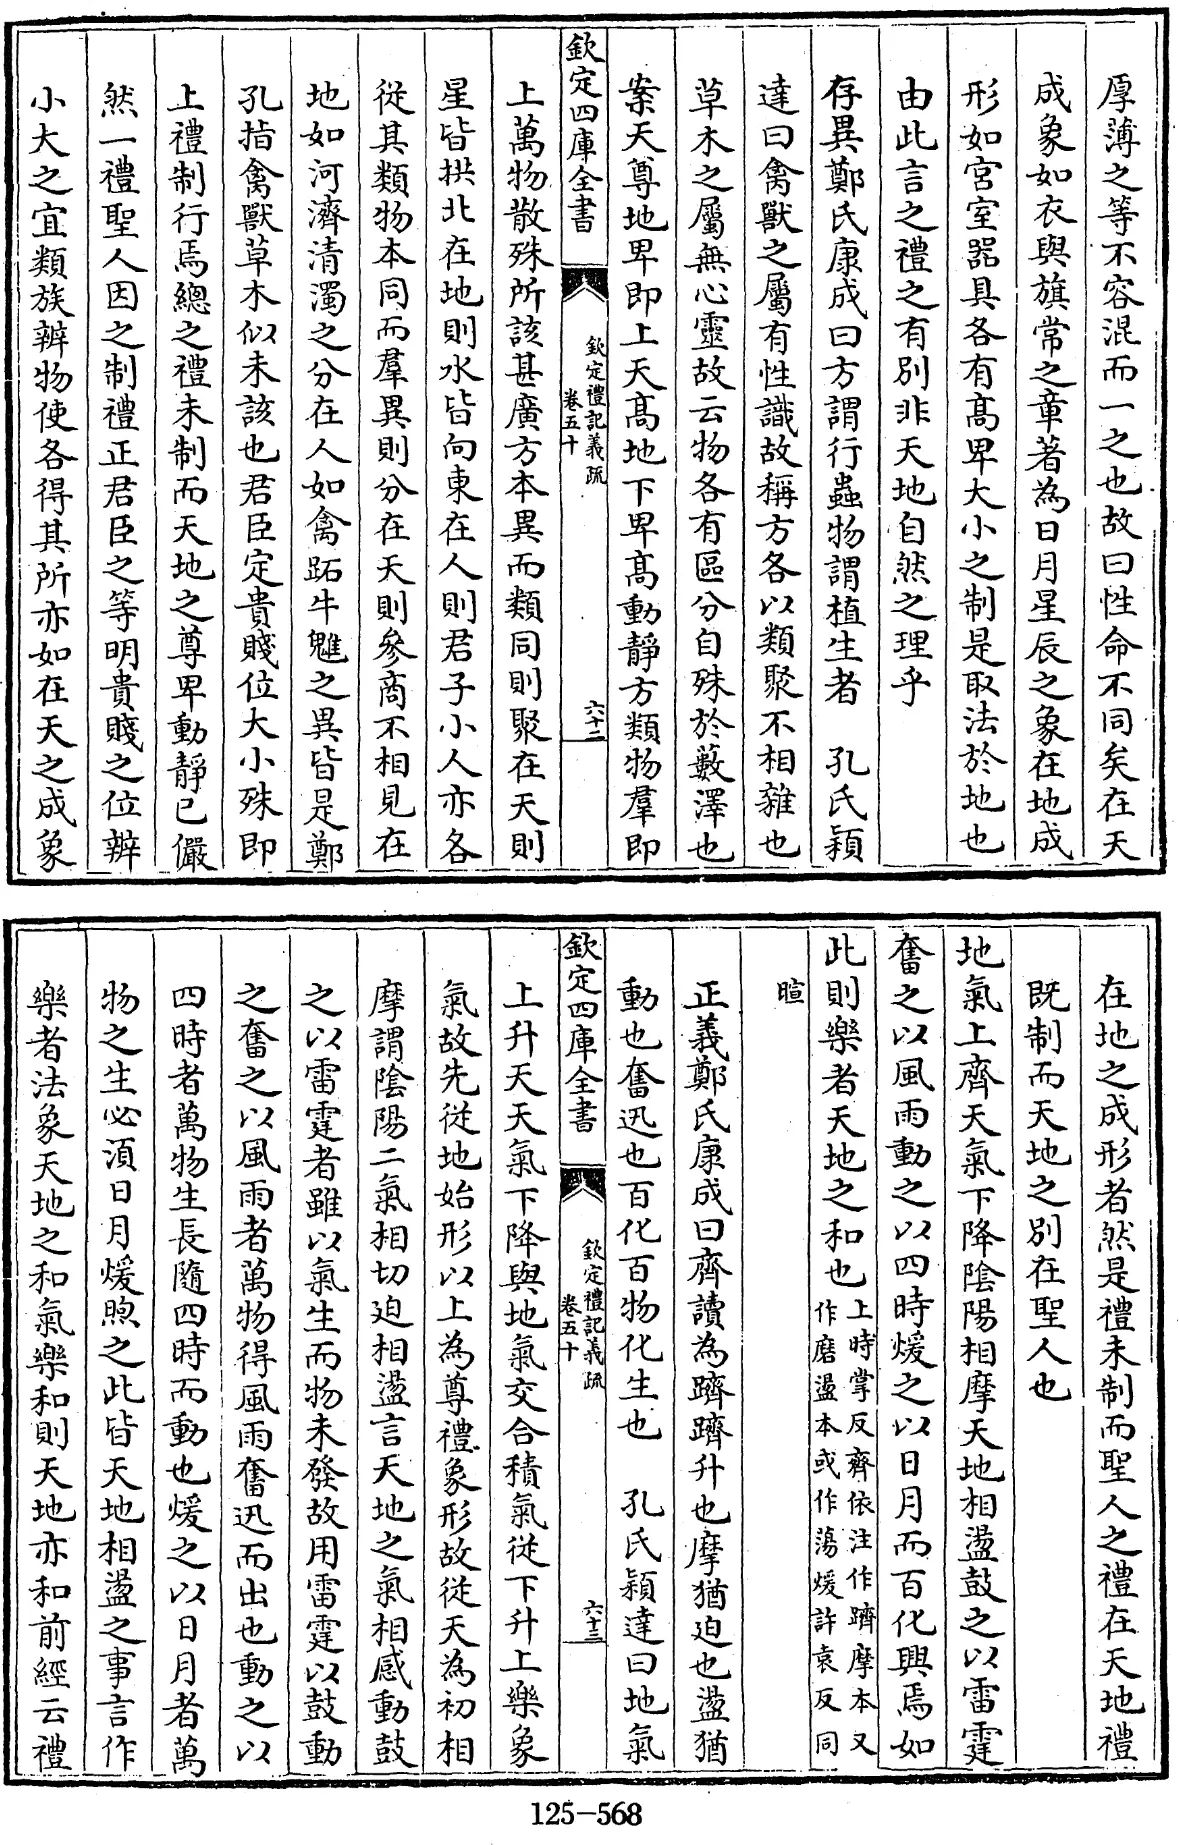 厚薄之等不容混而一之也故曰性命不同矣在天
成象如衣與旗常之章著為日月星辰之象在地成
形如宮室器具各有高卑大小之制是取法於地也
由此言之禮之有別非天地自然之理乎
存異鄭氏康成曰方謂行蟲物謂植生者　孔氏穎
達曰禽獸之屬有性識故稱方各以類聚不相雜也
草木之屬無心靈故云物各有區分自殊於藪澤也
案天尊地卑即上天高地下卑高動靜方類物羣即
欽定四庫全書
欽定禮記義疏
卷五十
六十二
上萬物散殊所該甚廣方本異而類同則聚在天則
星皆拱北在地則水皆向東在人則君子小人亦各
從其類物本同而羣異則分在天則參商不相見在
地如河濟清濁之分在人如禽跖牛魋之異皆是鄭
孔指禽獸草木似未該也君臣定貴賤位大小殊即
上禮制行焉總之禮未制而天地之尊卑動靜已儼
然一禮聖人因之制禮正君臣之等明貴賤之位辨
小大之宜類族辨物使各得其所亦如在天之成象
在地之成形者然是禮未制而聖人之禮在天地禮
既制而天地之別在聖人也
地氣上齊天氣下降陰陽相摩天地相盪鼓之以雷霆
奮之以風雨動之以四時煖之以日月而百化興焉如
此則樂者天地之和也上時掌反齊依注作躋摩本又
作磨盪本或作蕩煖許袁反同
暄
正義鄭氏康成曰齊讀為躋躋升也摩猶迫也盪猶
動也奮迅也百化百物化生也　孔氏穎達曰地氣
欽定四庫全書
欽定禮記義疏
卷五十
六十三
上升天天氣下降與地氣交合積氣從下升上樂象
氣故先從地始形以上為尊禮象形故從天為初相
摩謂陰陽二氣相切迫相盪言天地之氣相感動鼓
之以雷霆者雖以氣生而物未發故用雷霆以鼓動
之奮之以風雨者萬物得風雨奮迅而出也動之以
四時者萬物生長隨四時而動也煖之以日月者萬
物之生必須日月煖煦之此皆天地相盪之事言作
樂者法象天地之和氣樂和則天地亦和前經云禮
125-568